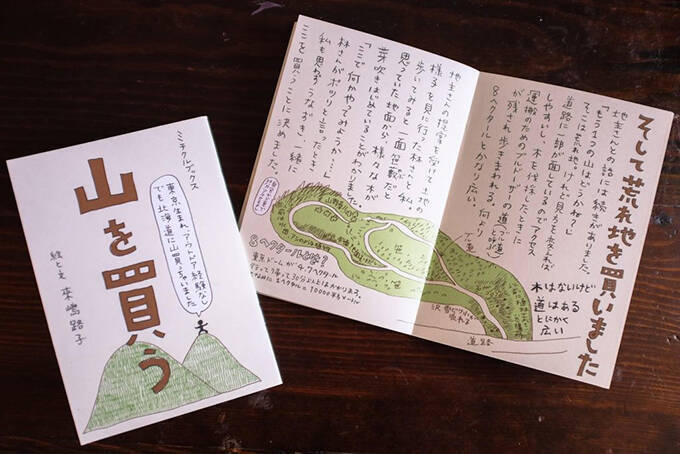 ミチクルブックス
山を買う
東京生まれ、アウトドア経験なし
でも北海道に山買っちゃいました
絵と文 來嶋路子
そして荒れ地を買いました
地主さんとの話には続きがありました。
「もう1つの山はどうかね」
そこは荒れ地。けれど見方を変えれば
道路に一部が面しているのでアクセス
しやすいし、木を伐採したときに
運搬のためのブルドーザの道(ブル道と呼ぶ)
が残され歩きまわれる。何より
8ヘクタールとかなり広い。
地主さんの提案を受けて土地の
様子を見に行った林さんと私。
歩いてみると一面笹藪だと
思っていた地面から、様々な木が
芽吹きはじめていることがわかりました。
「ここで何かやってみようか…」
林さんがポツリと言ったとき、
私も思わずうなずき、一緒に
ここを買うことに決めました。
木はないけど
道はある
とにかく
広い
8ヘクタールとは?
東京ドームが4.7ヘクタール
行って帰って30分以上はかかります。
1ヘクタール=10000平方メートル
笹
笹
沢
道路